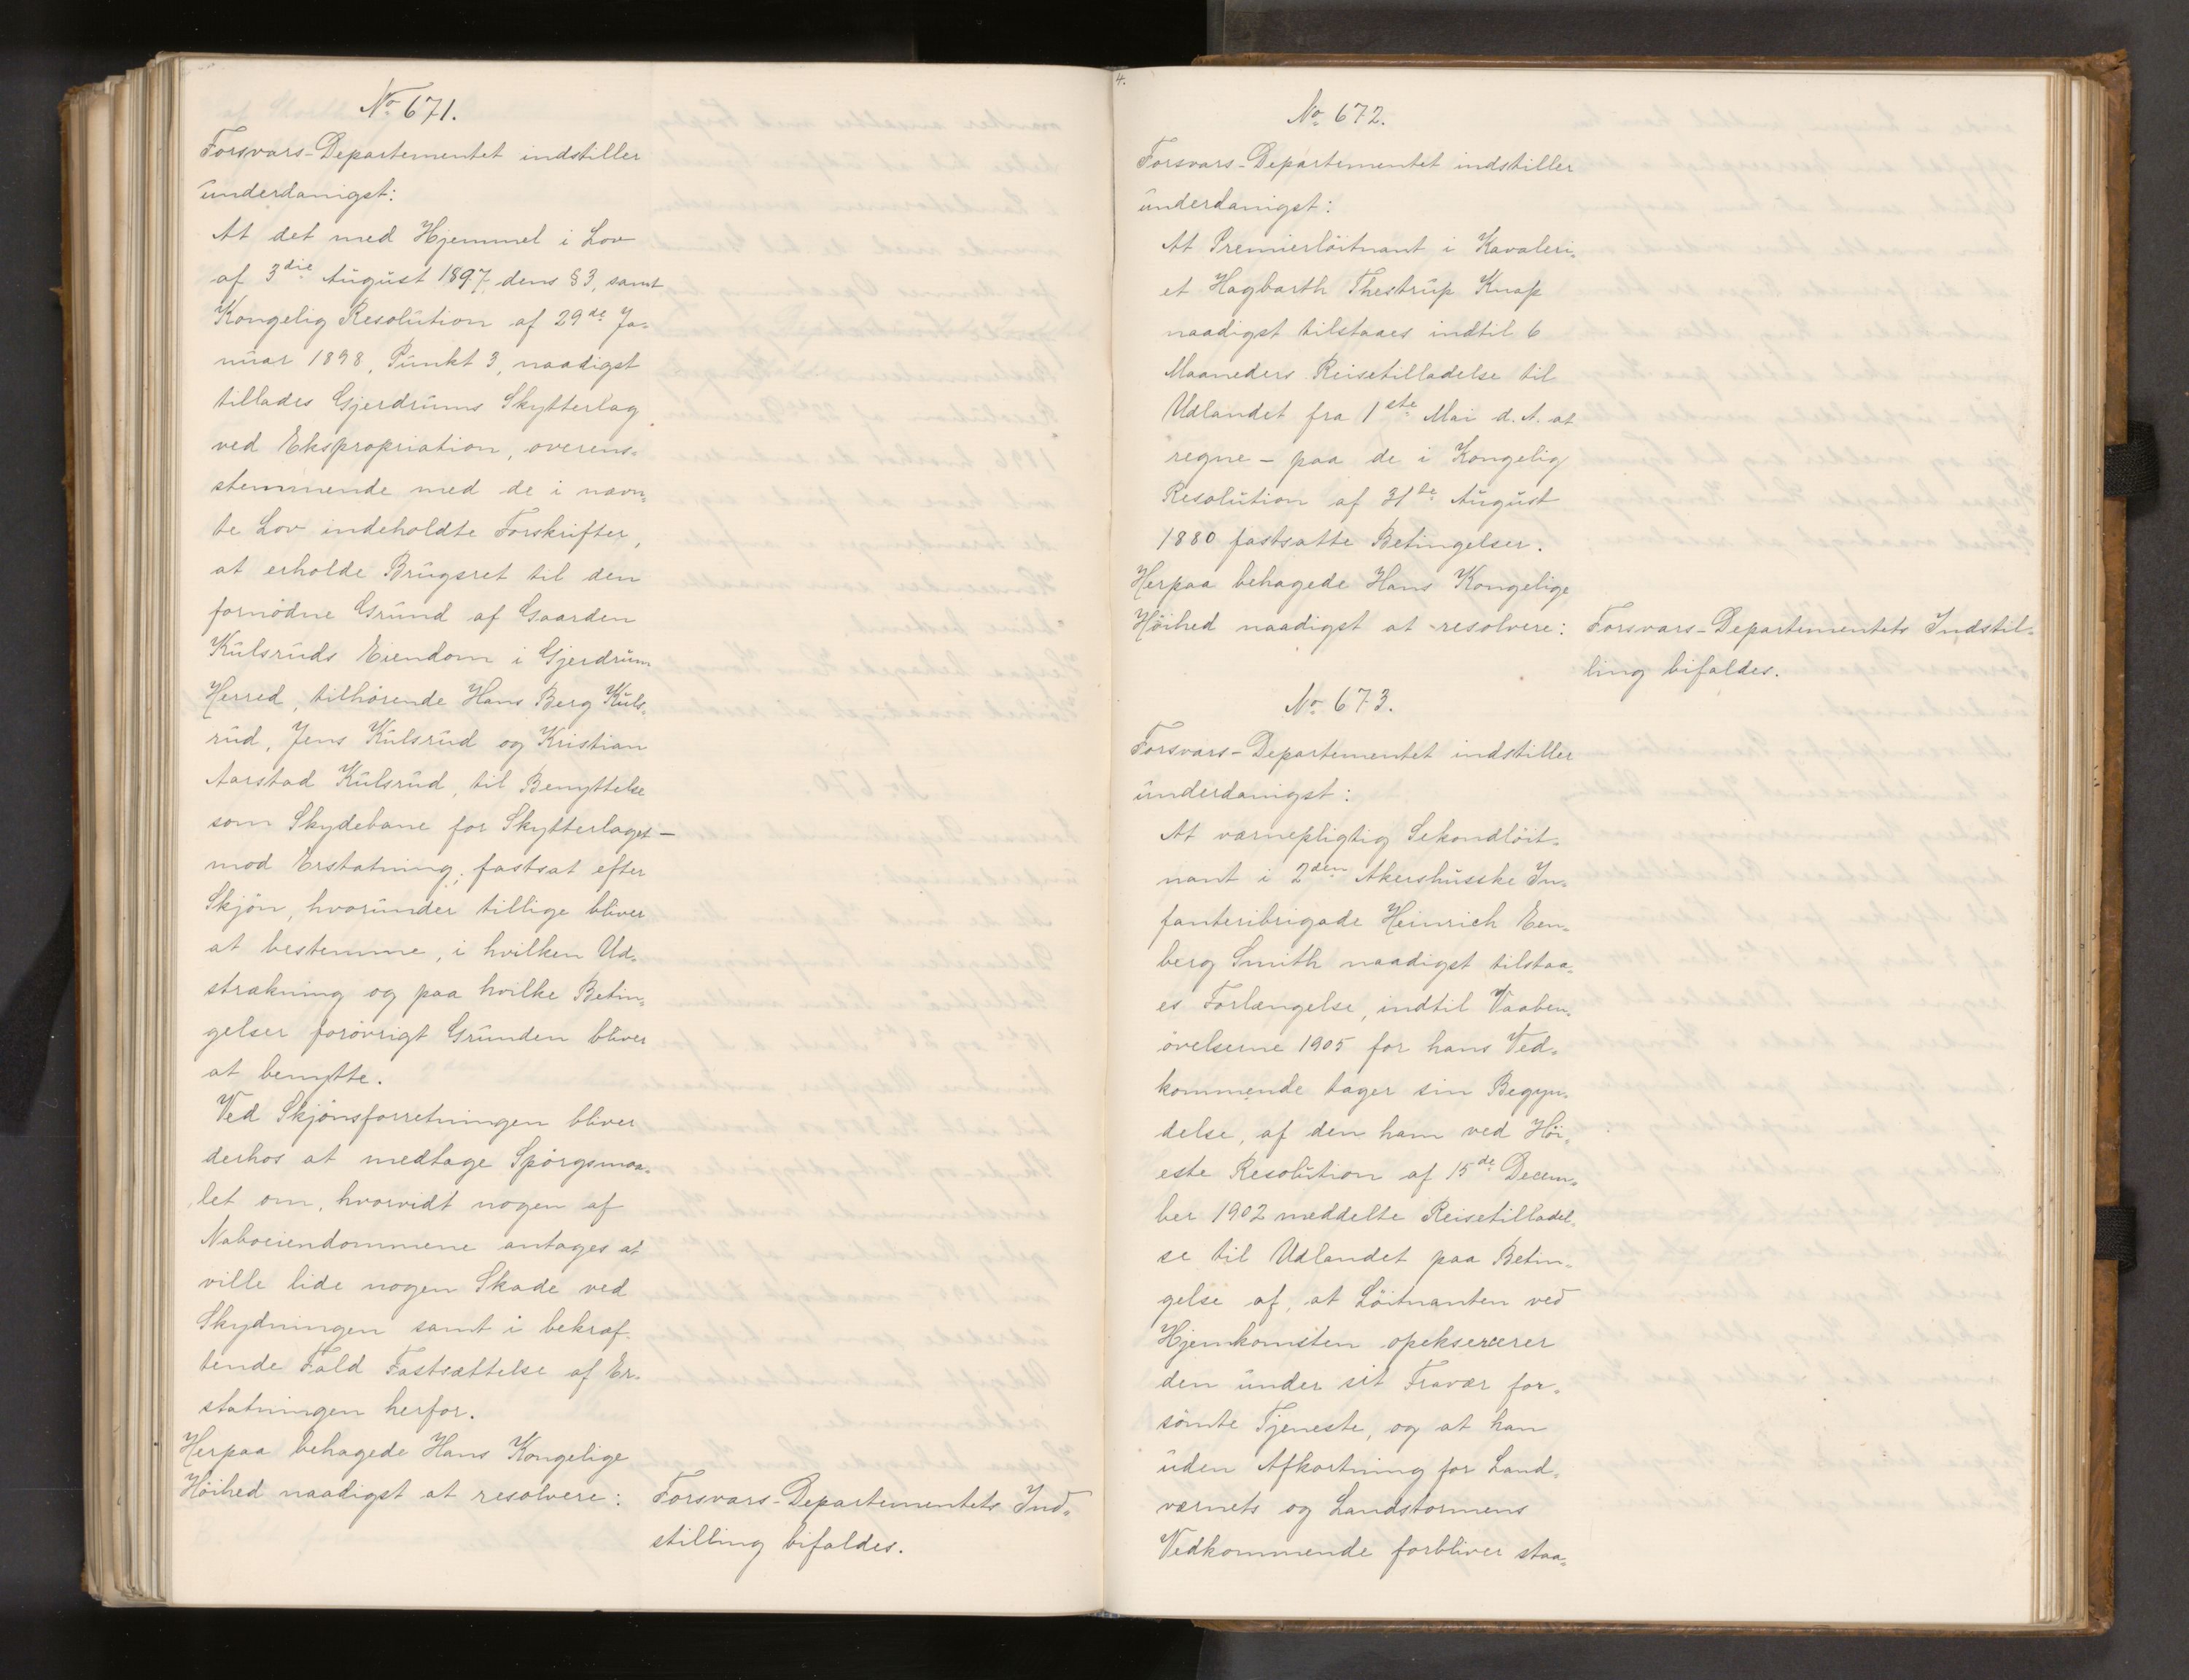 No 671.
Forsvars-Departementet indstiller
underdanigst:
At det med Hjemmel i Lov
af 3die August 1897, dens § 3, samt
Kongelig Resolution af 29de Ja-
nuar 1898, Punkt 3, naadigst
tillades Gjerdrums Skytterlag
ved Ekspropriation, overens-
stemmende med de i nævn-
te Lov indeholdte Forskrifter,
at erholde Brugsret til den
fornödne Grund af Gaarden
Kulsruds Eiendom i Gjerdrum
Herred, tilhörende Hans Berg Kuls-
rud, Jens Kulsrud og Kristian
Aarstad Kulsrud, til Benyttelse
som Skydebane for Skytterlaget —
mod Erstatning, fastsat efter
Skjön, hvorunder tillige bliver
at bestemme, i hvilken Ud-
strækning og paa hvilke Betin-
gelser forövrigt Grunden bliver
at benytte.
Ved Skjönsforretningen bliver
derhos at medtage Spörgsmaa-
let om, hvorvidt nogen af
Naboeiendommene antages at
ville lide nogen Skade ved
Skydningen samt i bekræf-
tende Fald Fastsættelse af Er-
statningen herfor.
Herpaa behagede Hans Kongelige
Höihed naadigst at resolvere: Forsvars-Departementets Ind-
stilling bifaldes.
4.
No 672.
Forsvars-Departementet indstiller
underdanigst:
At Premierlöitnant i Kavaleri-
et Hagbarth Thestrup Knap
naadigst tilstaaes indtil 6
Maaneders Reisetilladelse til
Udlandet fra 1ste Mai d. A. at
regne – paa de i Kongelig
Resolution af 31te August
1880 fastsatte Betingelser.
Herpaa behagede Hans Kongelige
Höihed naadigst at resolvere: Forsvars-Departementets Indstil-
ling bifaldes.
No 673.
Forsvars-Departementet indstiller
underdanigst:
At værnepligtig Sekondlöit-
nant i 2den Akershusske In-
fanteribrigade Heinrich
berg Smith naadigst tilstaa-
es Forlængelse, indtil Vaaben-
övelserne 1905 for hans Ved-
kommende tager sin Begyn-
delse, af den ham ved Höi-
este Resolution af 15de Decem-
ber 1902 meddelte Reisetilladel-
se til Udlandet paa Betin-
gelse af, at Löitnanten ved
Hjemkomsten opekserserer
den under sit Fravær for-
sömte Tjeneste, og at han
uden Afkortning for Land-
værnets og Landstormens
Vedkommende forbliver staa-